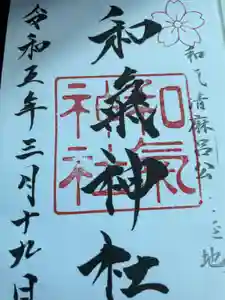 和气清麻呂公 地
和氣神社
和氣
神社
令和五年三月十九日